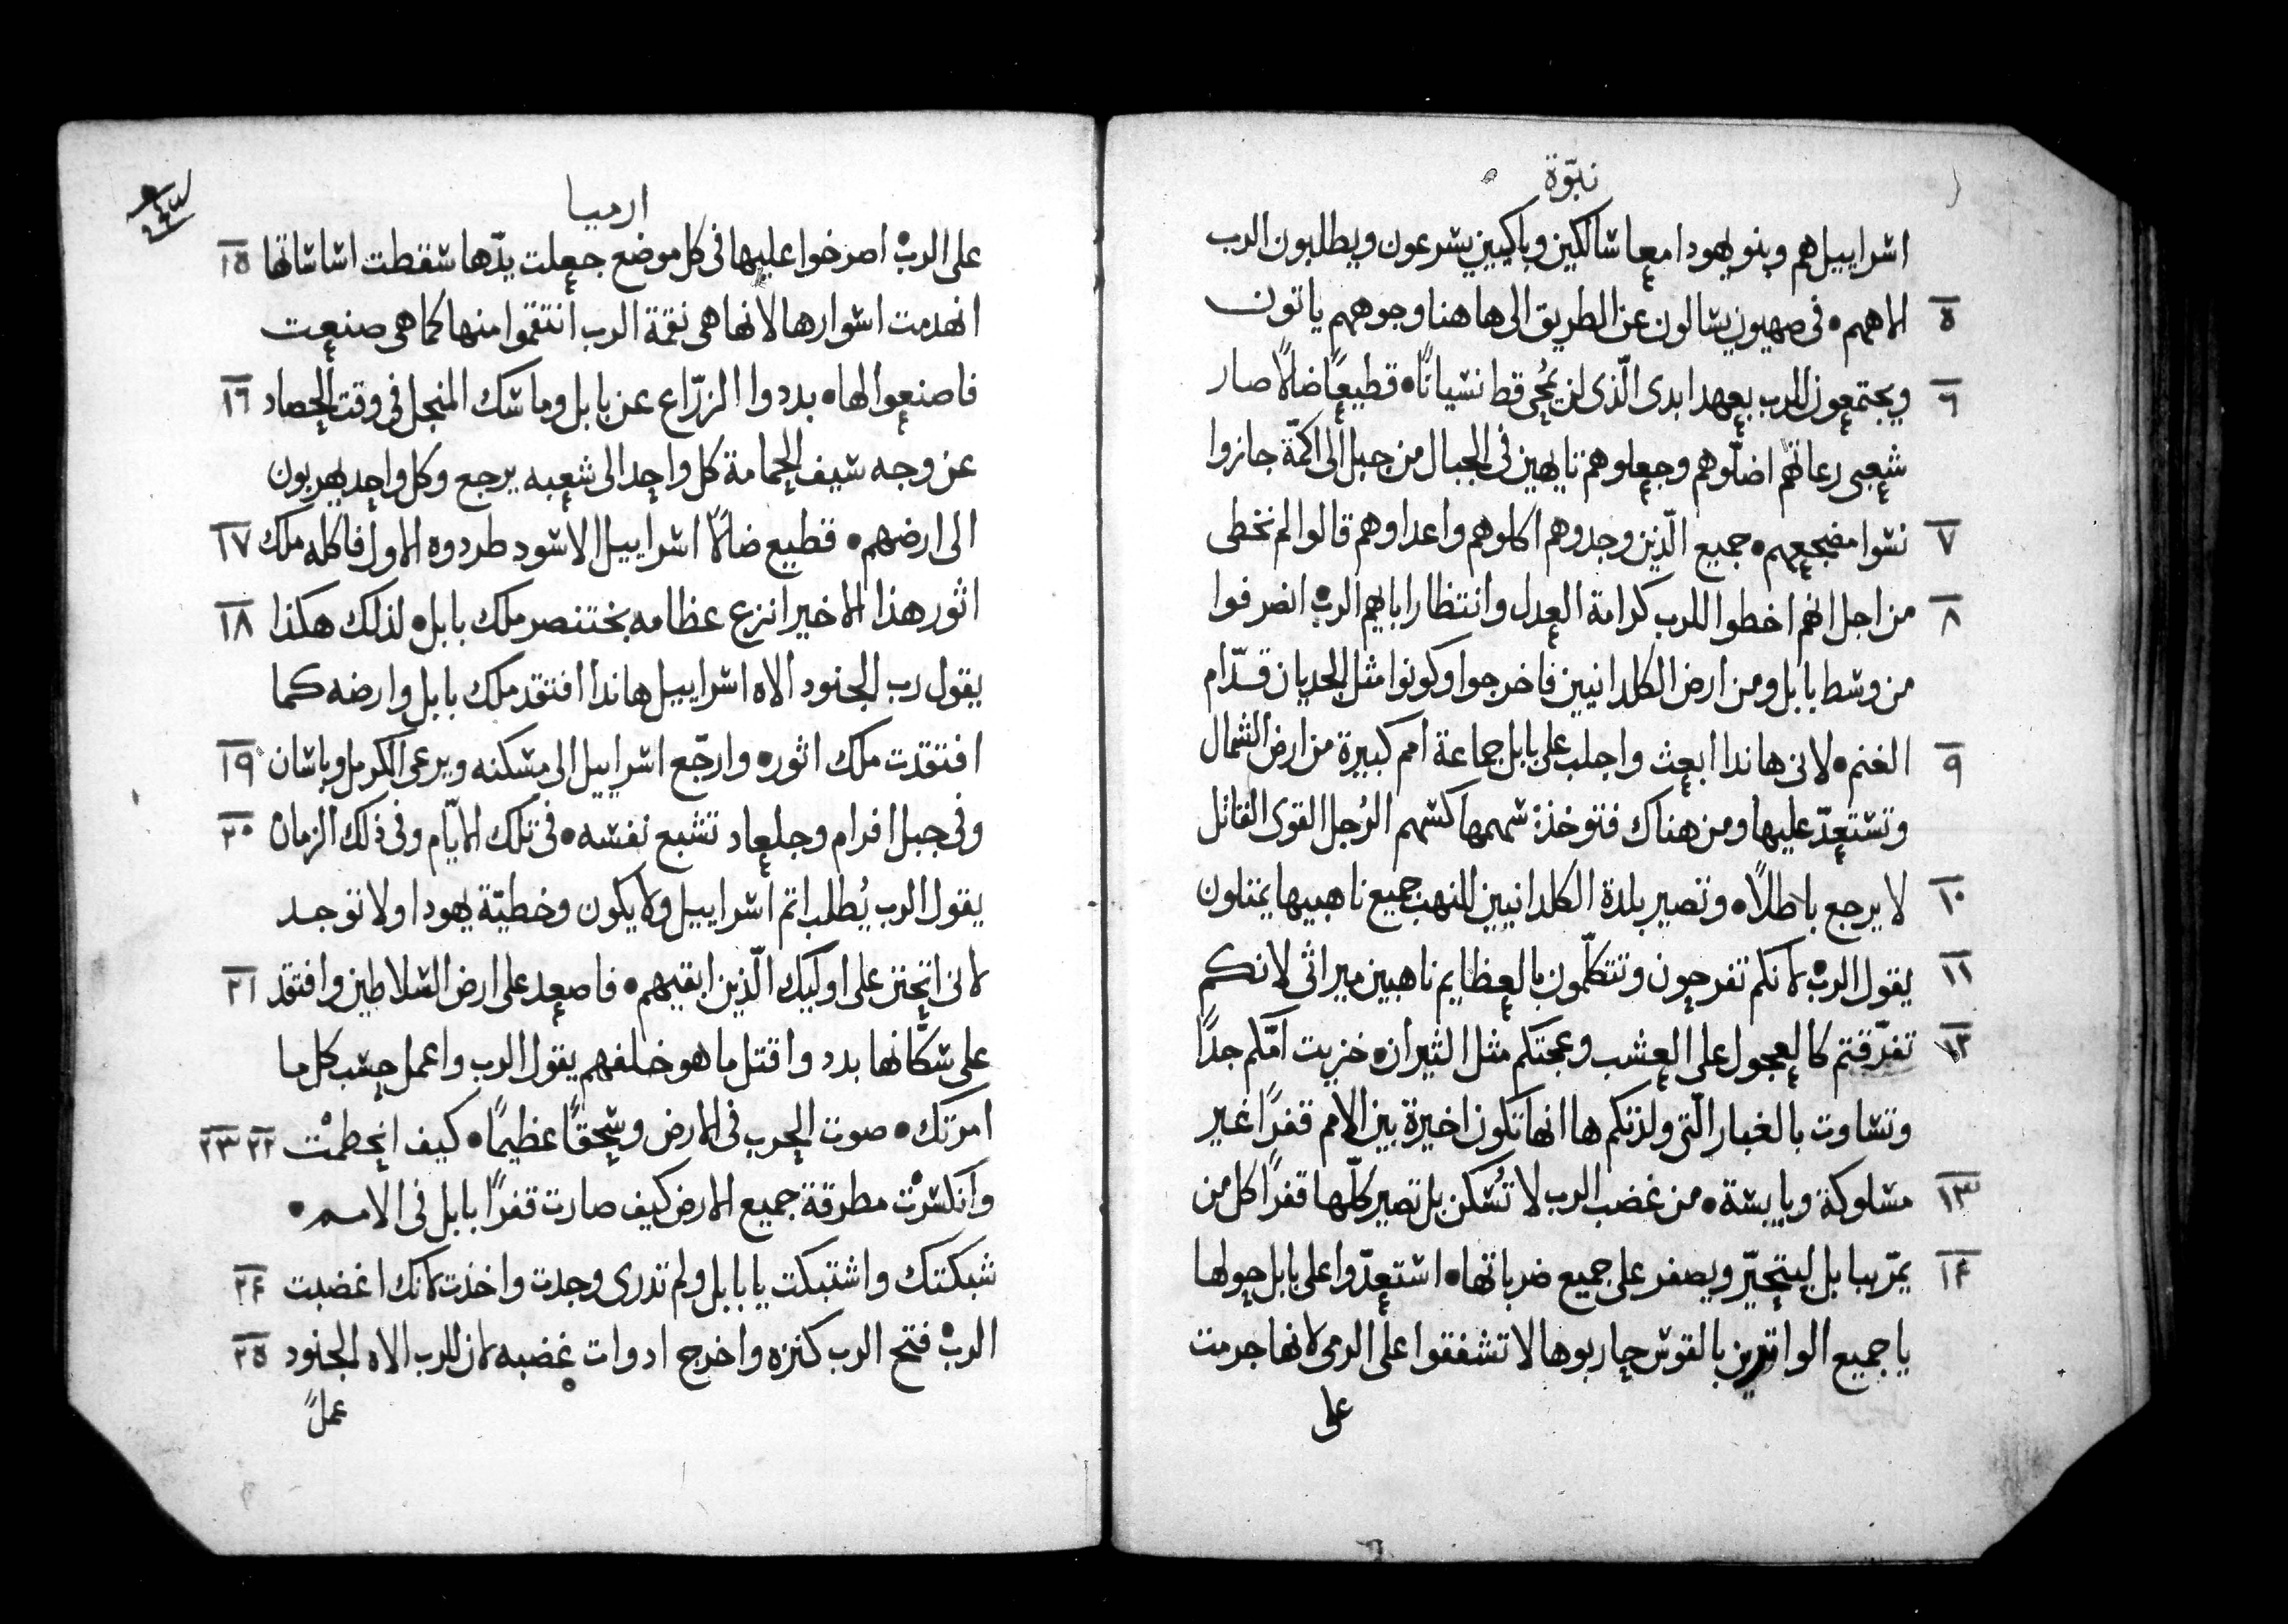 نبوّة
اشراييل هم وبنو يهودا معا شالكين وباكيين يشرعون ويطلبون الرب
٥ الاههم • فى صهيون يشالون عن الطريق الى هاهنا وجوههم ياتون
٦ ويجتمعون للرب بعهد ابدى الّذى لن يُمحى قط نشيانًا • قطيعًا ضالًا صار
شعبى رعاتهم اضلّوهم وجعلوهم تايهين فى الجبال من جبل الى اكمّة جازوا
٧ نشوا مضجعهم • جميع الّذين وجدوهم اكلوهم واعداوهم قالوا لم نخطى
٨ من اجل انهم اخطوا للرب كرامة العدل وانتظار اباهيم الرب • انصرفوا
من وشط بابل ومن ارض الكلدانيين فاخرجوا وكونوا مثل الجديان قدّام
٩ الغنم • لانى هاندا ابعث واجلب على بابل جماعة امم كبيرة من ارض الشمال
وتشتعدّ عليها ومن هناك فتوخذ شهمها كشهم الرُجل القوى القاتل
١٠ لا يرجع باطلًا • وتصير بلدة الكلدانيين للنهب جميع ناهبيها يمتلون
١١ يقول الرب • لانكم تفرحون وتتكلّمون بالعظايم ناهبين ميراثى لانكم
١٢ تفرّقتم كالعجول على العشب وعجتكم مثل الثيران • خزيت امّكم جدًا
وتشاوت بالغبار الّتى ولدتكم ها انها تكون اخيرة بين الامم قفرًا غير
١٣ مشلوكة ويابشة • من غضب الرب لا تُشكن بل تصير كلّها قفرًا كل من
١٤ يمرّ ببابل ليتحيّر ويصفر على جميع ضرباتها • اشتعدّوا على بابل حولها
يا جميع الواترين بالقوش حاربوها لا تشفقوا على الرمى لانها جرمت
على
ارميا
على الرب • اصرخوا عليها فى كل موضع جعلت يدّها شقطت اشاشاتها ١٥
انهدمت اشوارها لانها هى نقمة الرب انتقموا منها كما هى صنعت
فاصنعوا لها • بددوا الزرّاع عن بابل وماشك المنجل فى وقت الحصاد ١٦
عن وجه شيف الحمامة كل واحد الى شعبه يرجع وكل واحد يهربون
الى ارضهم • قطيع ضالًا اشراييل الاشود طردوه الاول فاكله ملك ١٧
اثور هذا الاخير انزع عظامه بختنصر ملك بابل • لذلك هكذا ١٨
يقول رب الجنود الاه اشراييل هاندا افتقد ملك بابل وارضه كما
افتقدت ملك اثور • وارجّع اشراييل الى مشكنه ويرعى الكرمل وباشان ١٩
وفى جبل افرام وجلعاد تشبع نفشه • فى تلك الايّام وفى ذلك الزمان ٢٠
يقول الرب يُطلب اثم اشراييل ولا يكون وخطيّة يهودا ولا توجد
لانى اتحنن على اوليك الّذين ابقيهم • فاصعد على ارض الشلاطين وافتقد ٢١
على شكّانها بدد واقتل ما هو خلفهم يقول الرب واعمل حشب كل ما
امرتك • صوت الحرب فى الارض وشحقًا عظيمًا • كيف انحطمت ٢٢ ٢٣
وانكشرت مطرقة جميع الارض كيف صارت قفرًا بابل فى الامم •
شبكتك واشتبكت يا بابل ولم تدرى وجدت واخذت لانك اغضبت ٢٤
الرب • فتح الرب كنزه واخرج ادوات غضبه لان للرب الاه الجنود ٢٥
عملً